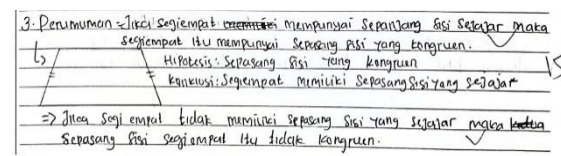 3. Perumuman = Jika segiempat mempunyai sepanjang sisi sejajar maka
segiempat itu mempunyai sepasang sisi yang kongruen.
Hipotesis : Sepasang sisi yang kongruen
Konklusi : Segiempat memiliki sepasang sisi yang sejajar
=> Jika segi empat tidak memiliki sepasang sisi yang sejajar maka
sepasang sisi segiempat itu tidak kongruen.